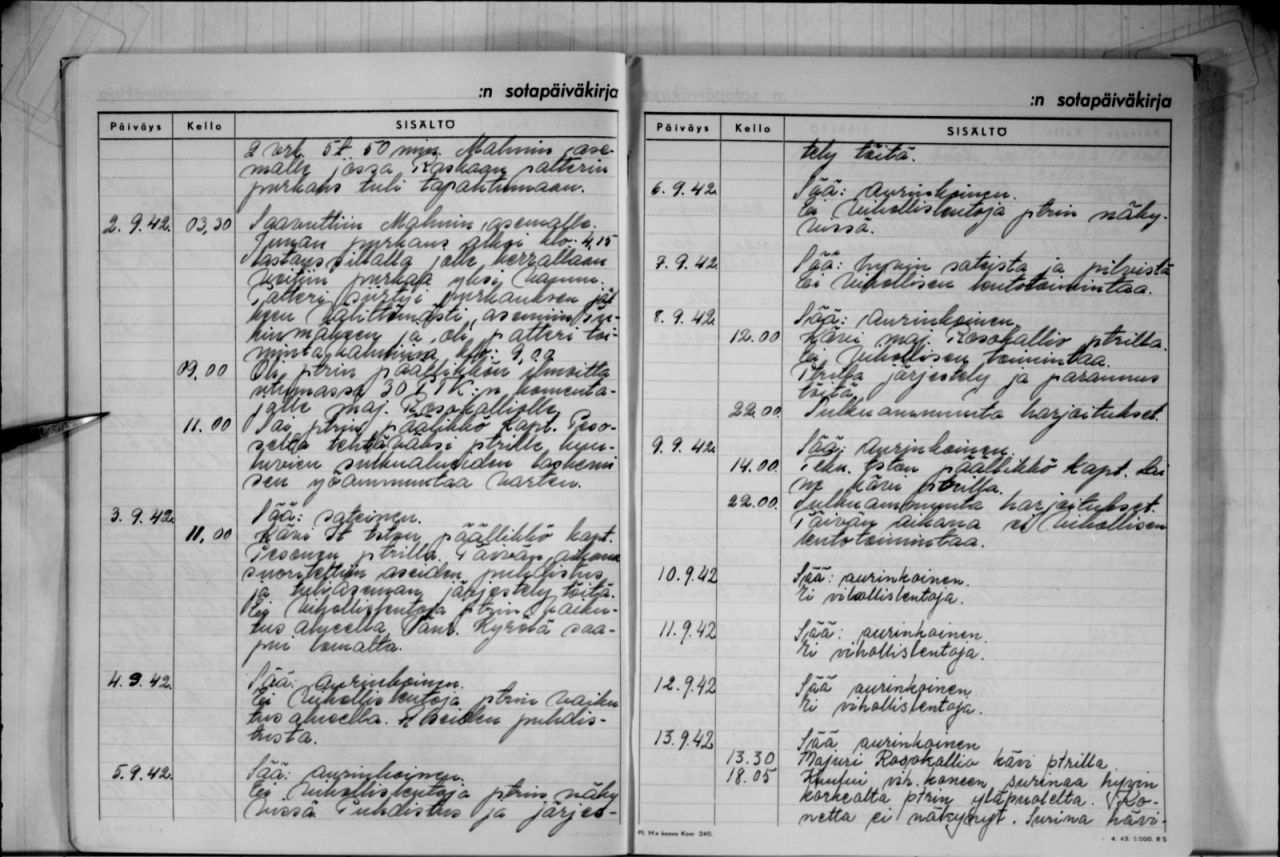 :n sotapäiväkirja
Päiväys Kello SISÄLTÖ
2 vrk 5t. 50 min. Malmin ase-
malle jossa Raskaan patterin
purkaus tuli tapahtumaan.
2.9.42. 03,30 Saavuttiin Malmin asemalle.
Junan purkaus alkoi klo: 4,15
lastaussillalta jolle kerrallaan
voitiin purkaa yksi vaunu.
Patteri siirtyi purkauksen jäl-
keen välittömästi asemiin
mäkeen ja oli patteri toi-
mintavalmiina klo: 9,00
09,00 Oli ptrin päällikkön ilmoitta
utumassa 30 PTK:n komenta-
jalle maj. Rosokalliolle
11.00 Sai ptrin päälikkö kapt. Peso-
selta tehtäväksi ptrille
sulkualueiden laskemi
sen yöammuntaa varten.
3.9.42. Sää: sateinen.
11,00 Kävi It. Eston päällikkö kapt.
Pesonen ptrillä. Päivän aikana
suoritettiin aseiden puhdistus
ja tuliaseman järjestely töitä.
Ei vihollislentoja ptrin vaiku-
tus alueella. Vänr. Kyrölä saa-
pui lomalta.
4.9.42. Sää: aurinkoinen.
Ei vihollislentoja ptrin vaiku
tus alueella. Aseiden puhdis-
tusta.
5.9.42. Sää: aurinkoinen.
Ei vihollislentoja ptrin näky
vissä. Puhdistus ja järjes-
:n sotapäiväkirja
Päiväys Kello SISÄLTÖ
tely töitä.
6.9.42. Sää: aurinkoinen.
Ei vihollislentoja ptrin näky-
vissä.
7.9.42 Sää: hyvin sateista ja pilvistä
Ei vihollisen lentotoimintaa.
8.9.42 Sää: aurinkoinen.
12.00 Kävi maj. Rosokallio ptrilla.
Ei vihollisen toimintaa.
Ptrilla järjestely ja parannus
töitä.
22.00 Sulkuammunta harjoitukset.
9.9.42. Sää: aurinkoinen
14.00. Tekn. Eston päällikkö kapt. Lai
ne kävi ptrilla.
22.00. Sulkuammunta harjoitukset.
Päivän aikana ei vihollisen
lentotoimintaa.
10.9.42 Sää: aurinkoinen.
Ei vihollislentoja.
11.9.42 Sää: aurinkoinen.
Ei vihollislentoja.
12.9.42 Sää aurinkoinen.
Ei vihollislentoja.
13.9.42 Sää aurinkoinen
13.30 Majuri Rosokallio kävi ptrilla.
18.05 Kuului vih. koneen surinaa hyvin
korkealta ptrin yläpuolelta. Ko-
netta ei näkynyt. Surina hävi-
Pl. M:n kaava Kom 240.
4. 43. 5000. R S